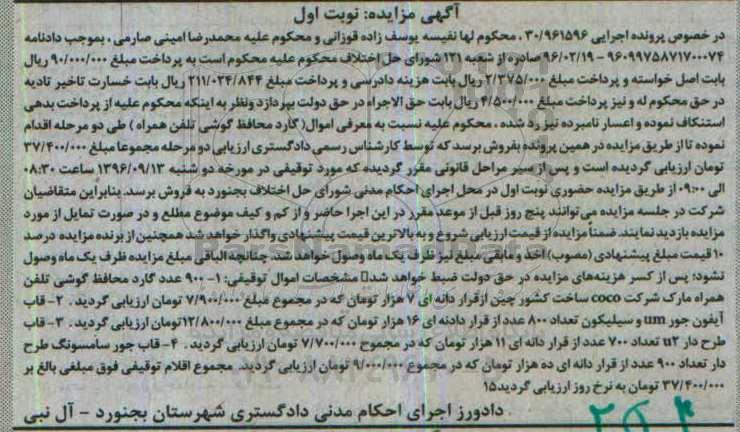 آگهی مزایده: نوبت اول
در خصوص پرونده اجرایی ۳۰/۹۶۱۵۹۶ ، محکوم لها نفیسه یوسف زاده قوزانی و محکوم علیه محمدرضا امینی صارمی ، بموجب دادنامه
۹۶۰۹۹۷۵۸۷۱۷۰۰۰۷۴ - ۹۶/۰۲/۱۹ صادره از شعبه ۱۲۱ شورای حل اختلاف محکوم علیه محکوم است به پرداخت مبلغ ۹۰/۰۰۰/۰۰۰ ریال
بابت اصل خواسته و پرداخت مبلغ ۲/۳۷۵/۰۰۰ ریال بابت هزینه دادرسی و پرداخت مبلغ ۲۱۱/۰۲۴/۸۴۴ ریال بابت خسارت تاخیر تادیه
در حق محکوم له و نیز پرداخت مبلغ ۴/۵۰۰/۰۰۰ ریال بابت حق الاجراء در حق دولت بپردازد ونظر به اینکه محکوم علیه از پرداخت بدهی
استنکاف نموده و اعسار نامبرده نیز رد شده ، محکوم علیه نسبت به معرفی اموال( گارد محافظ گوشی تلفن همراه ) طی دو مرحله اقدام
نموده تا از طریق مزایده در همین پرونده بفروش برسد که توسط کارشناس رسمی دادگستری ارزیابی دو مرحله مجموعا مبلغ ۳۷/۴۰۰/۰۰۰
تومان ارزیابی گردیده است و پس از سیر مراحل قانونی مقرر گردیده که مورد توقیفی در مورخه دو شنبه ۱۳۹۶/۰۹/۱۳ ساعت ۰۸:۳۰
الی ۰۹:۰۰ از طریق مزایده حضوری نوبت اول در محل اجرای احکام مدنی شورای حل اختلاف بجنورد به فروش برسد. بنابراین متقاضیان
شرکت در جلسه مزایده می توانند پنج روز قبل از موعد مقرر در این اجرا حاضر و از کم و کیف موضوع مطلع و در صورت تمایل از مورد
مزایده بازدید نمایند. ضمناً مزایده از قیمت ارزیابی شروع و به بالاترین قیمت پیشنهادی واگذار خواهد شد همچنین از برنده مزایده درصد
۱۰ قیمت مبلغ پیشنهادی (مصوب) اخذ و مابقی مبلغ نیز ظرف یک ماه وصول خواهد شد. چنانچه الباقی مبلغ مزایده ظرف یک ماه وصول
نشود؛ پس از کسر هزینه‌های مزایده در حق دولت ضبط خواهد شد▯ مشخصات اموال توقیفی: ۱- ۹۰۰ عدد گارد محافظ گوشی تلفن
همراه مارک شرکت coco ساخت کشور چین ازقرار دانه ای ۷ هزار تومان که در مجموع مبلغ ۷/۹۰۰/۰۰۰ تومان ارزیابی گردید . ۲- قاب
آیفون جور um و سیلیکون تعداد ۸۰۰ عدد از قرار دادنه ای ۱۶ هزار تومان که در مجموع مبلغ ۱۲/۸۰۰/۰۰۰تومان ارزیابی گردید . ۳- قاب
طرح دار u2 تعداد ۷۰۰ عدد از قرار دانه ای ۱۱ هزار تومان که در مجموح ۷/۷۰۰/۰۰۰ تومان ارزیابی گردید . ۴- قاب جور سامسونگ طرح
دار تعداد ۹۰۰ عدد از قرار دانه ای ده هزار تومان که در مجموع ۹/۰۰۰/۰۰۰ تومان ارزیابی گردید. مجموع اقلام توقیفی فوق مبلغی بالغ بر
۳۷/۴۰۰/۰۰۰ تومان به نرخ روز ارزیابی گردید۱۵
دادورز اجرای احکام مدنی دادگستری شهرستان بجنورد - آل نبی